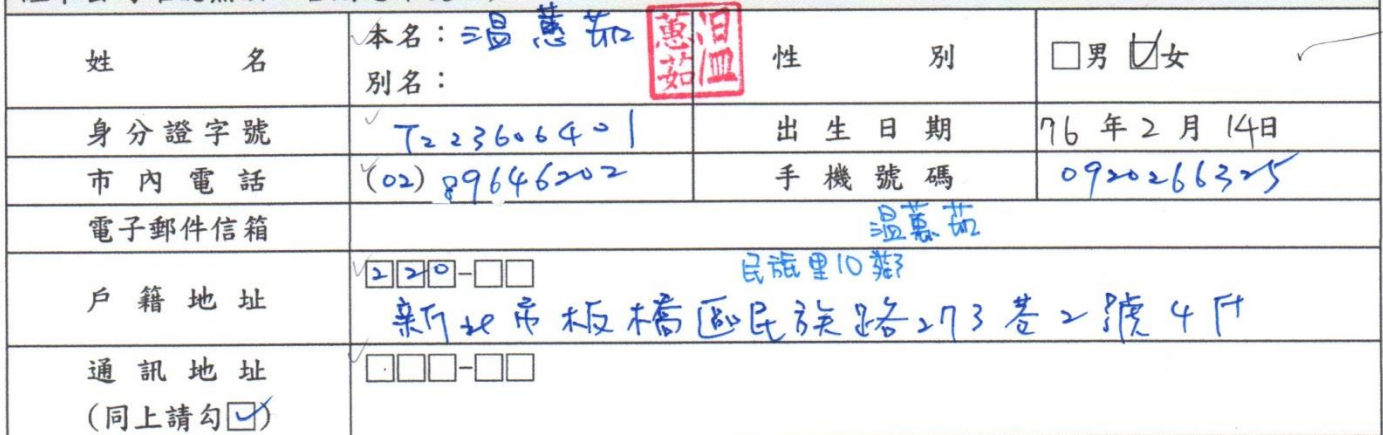 姓名 本名：溫蕙茹 溫蕙茹 性別 □男 ☑女
別名：
身分證字號 T223606401 出生日期 76年2月14日
市內電話 (02) 89646202 手機號碼 0920266325
電子郵件信箱 溫蕙茹
220-□□ 民族里10鄰
戶籍地址 新北市板橋區民族路273巷2號4F
通訊地址 □□□-□□
(同上請勾☑)